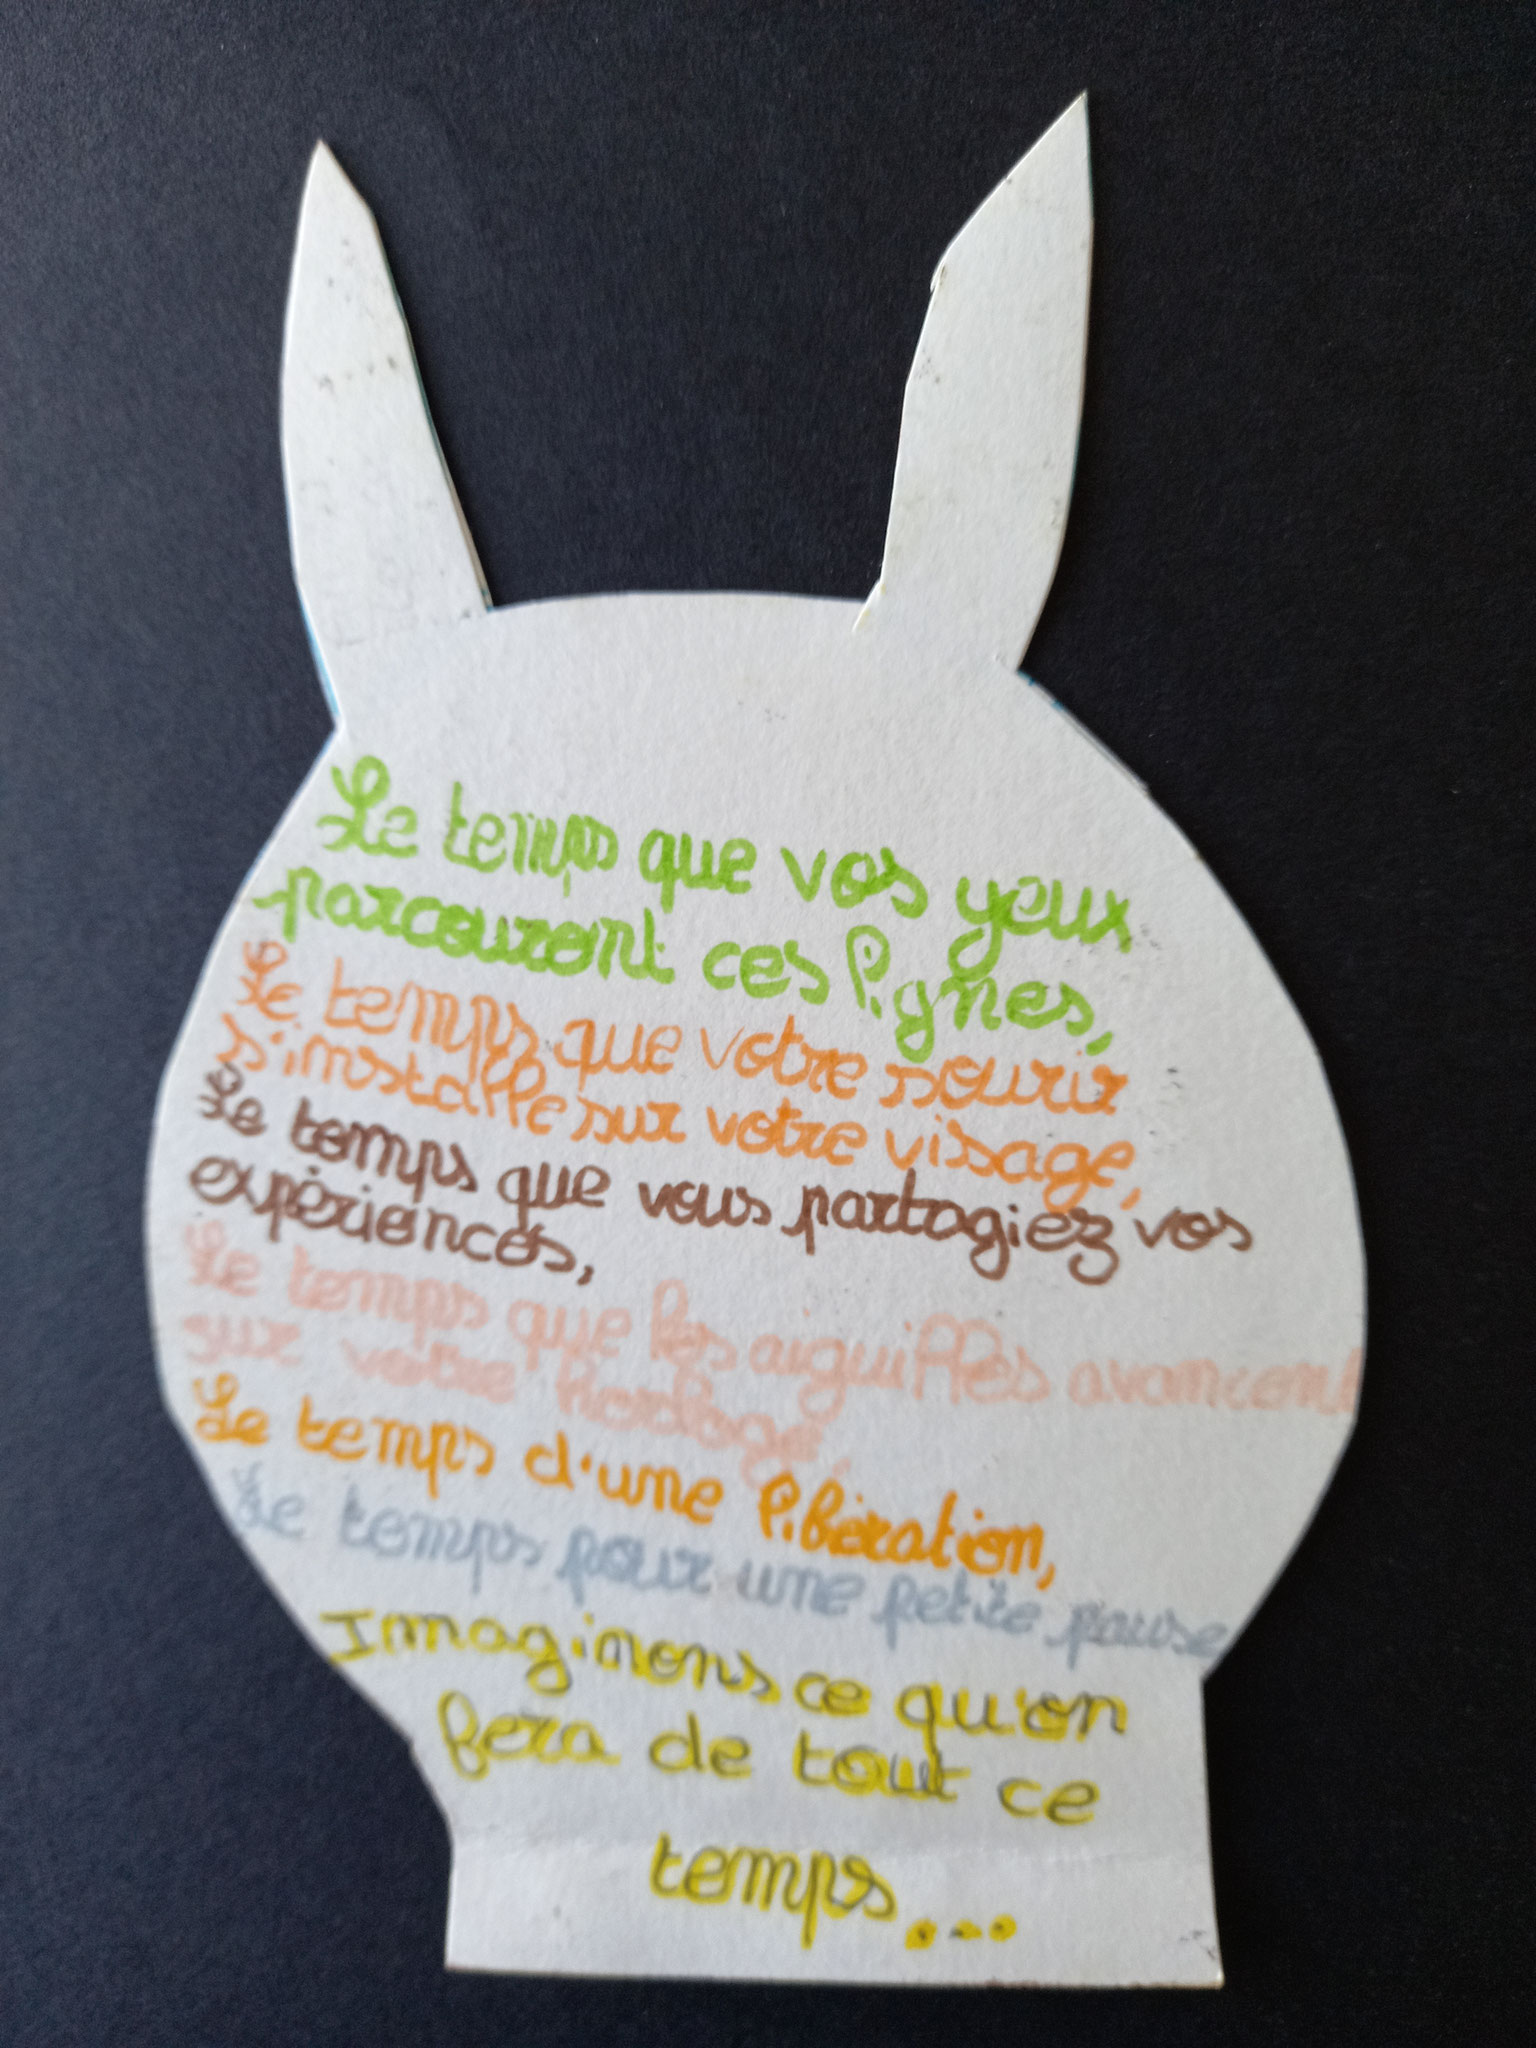 Le temps que vos yeux
parcourent ces lignes,
Le temps que votre sourir
s'installe sur votre visage,
Le temps que vous partagiez vos
expériences,
Le temps que les aiguilles avancent
sur votre horloge,
Le temps d'une libération,
Le temps pour une petite pause
Imaginons ce qu'on
fera de tout ce
temps...